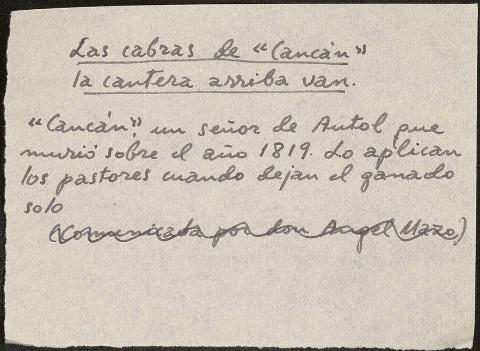 Las cabras de "Cancán"
la cantera arriba van.
"Cancán", un señor de Autol que
murió sobre el año 1819. Lo aplican
los pastores cuando dejan el ganado
solo
(Comunicada por don Angel Mazo)